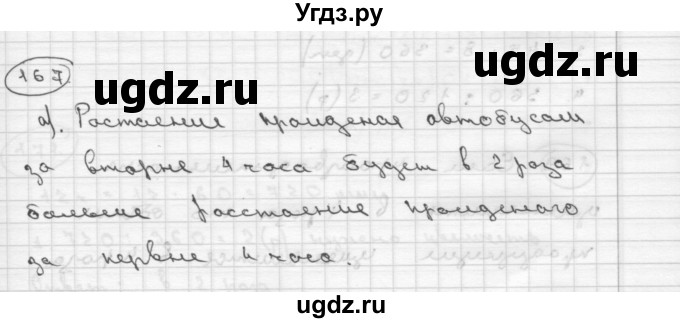 Угдз.ру
167
ugdz.ru ugdz.ru
а). Растаение пройденая автобусам
за вторые 4 часа будет в 2 роза
больше расстаение пройденого
за первые 4 часа.
ugdz.ru ugdz.ru
ugdz.ru